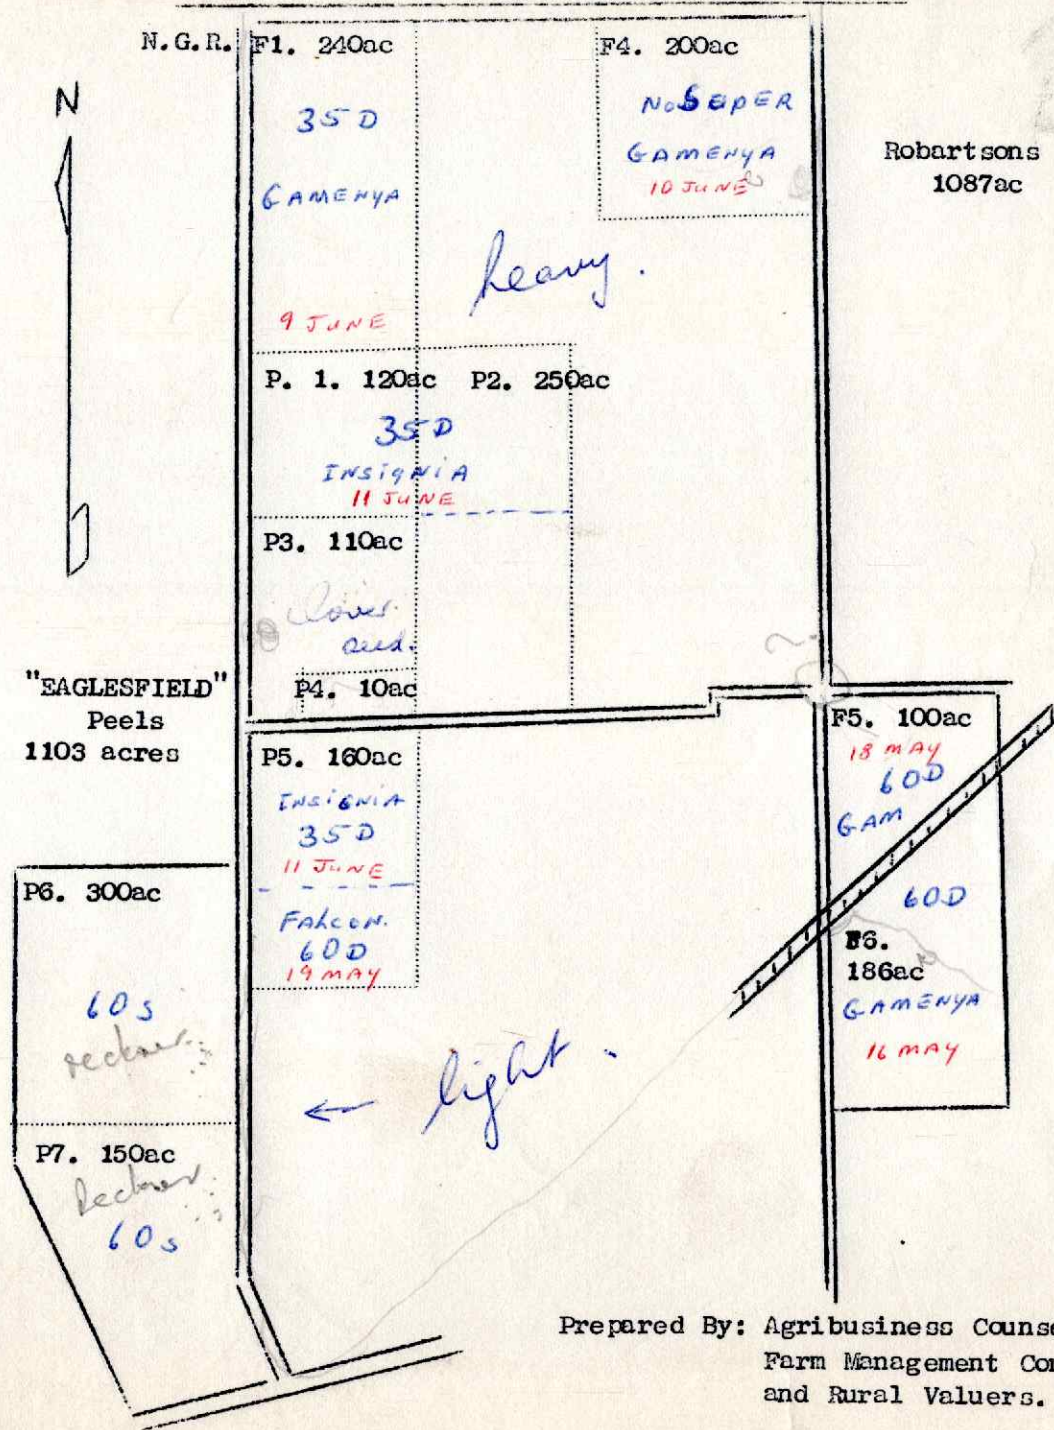 N.G.R.
F1. 240ac
35D
GAMENYA
9 JUNE
F4. 200ac
No SUPER
GAMENYA
10 JUNE
Robartsons
1087ac
N
heavy.
P. 1. 120ac P2. 250ac
35D
INSIGNIA
11 JUNE
P3. 110ac
P4. 10ac
"EAGLESFIELD"
Peels
1103 acres
P5. 160ac
INSIGNIA
35D
11 JUNE
FALCON.
60D
19 MAY
F5. 100ac
18 MAY
60D
GAM
60D
186ac
GAMENYA
16 MAY
P6. 300ac
60s
light.
P7. 150ac
60s
Prepared By: Agribusiness
Farm Management
and Rural Valuers.